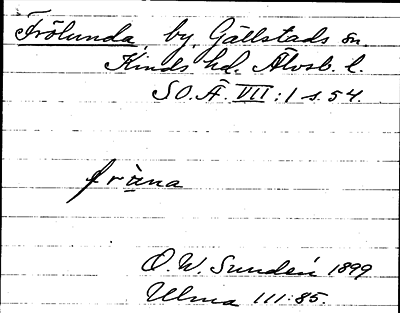 Frölunda, by, Gällstads sn.
Kinds hd. Älvsb. l.
SO.Ä. VII:1 s. 54.
fräna
O.W. Sundén 1899
Ulma 111:85.